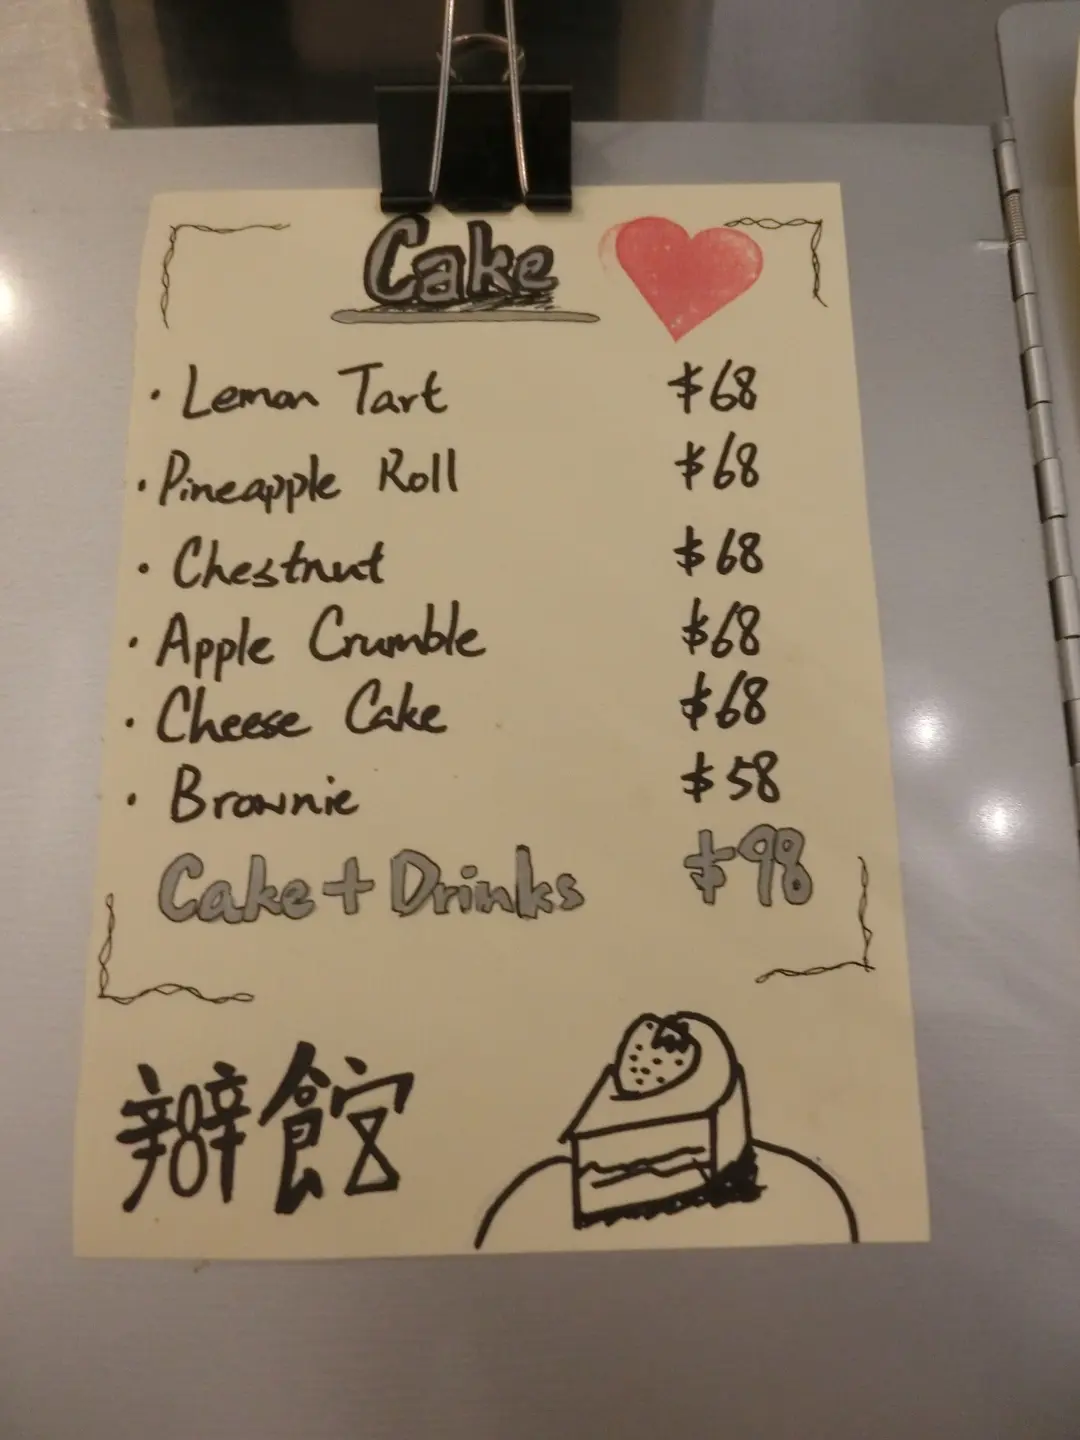 Cake
· Lemon Tart $68
· Pineapple Roll $68
· Chestnut $68
· Apple Crumble $68
· Cheese Cake $68
· Brownie $58
Cake + Drinks $98
辦館